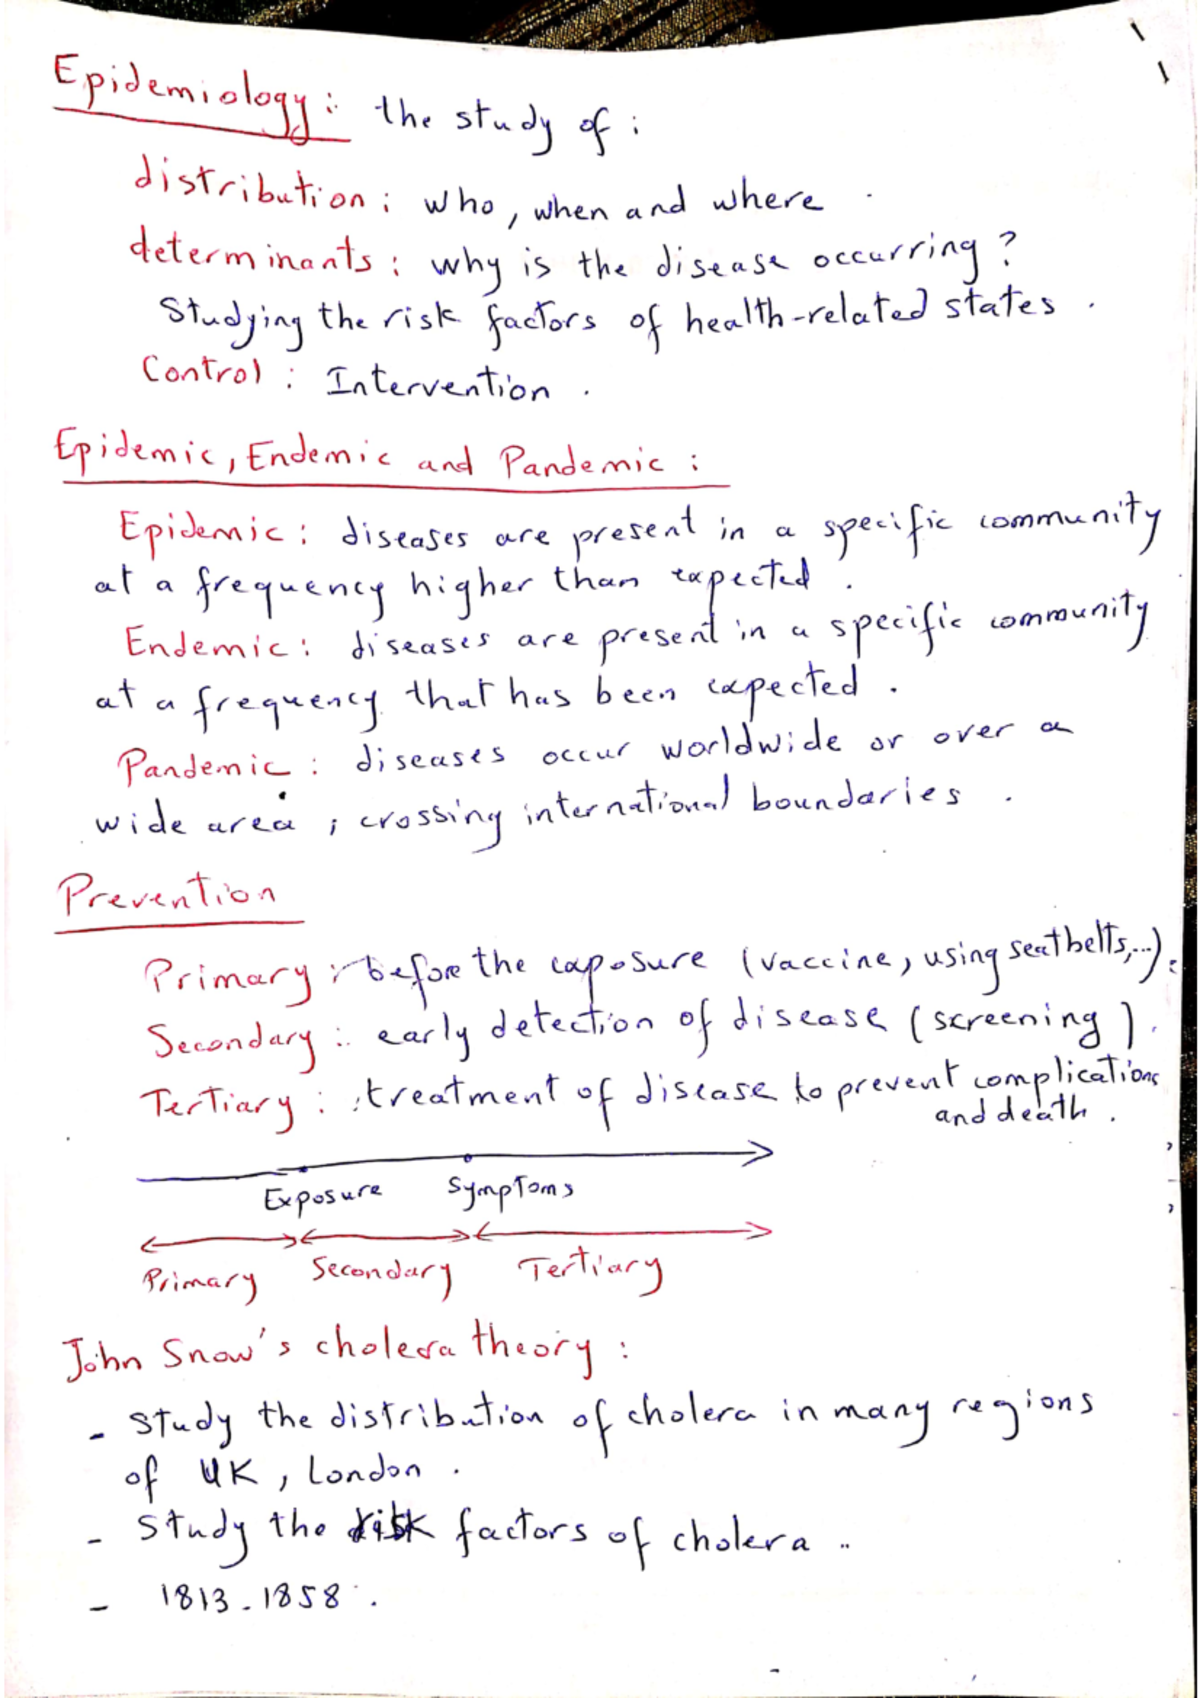 Epidemiology: the study of:
distribution: who, when and where.
determinants: why is the disease occurring?
Studying the risk factors of health-related states.
Control: Intervention.
Epidemic, Endemic and Pandemic:
Epidemic: diseases are present in a specific community
at a frequency higher than expected.
Endemic: diseases are present in a specific community
at a frequency that has been expected.
Pandemic: diseases occur worldwide or over a
wide area, crossing international boundaries.
Prevention
Primary: before the exposure (vaccine, using seatbelts,...).
Secondary: early detection of disease (screening).
Tertiary: treatment of disease to prevent complications
and death.
Exposure Symptoms
Primary Secondary Tertiary
John Snow's cholera theory:
- Study the distribution of cholera in many regions
of UK, London.
- Study the risk factors of cholera..
- 1813-1858.